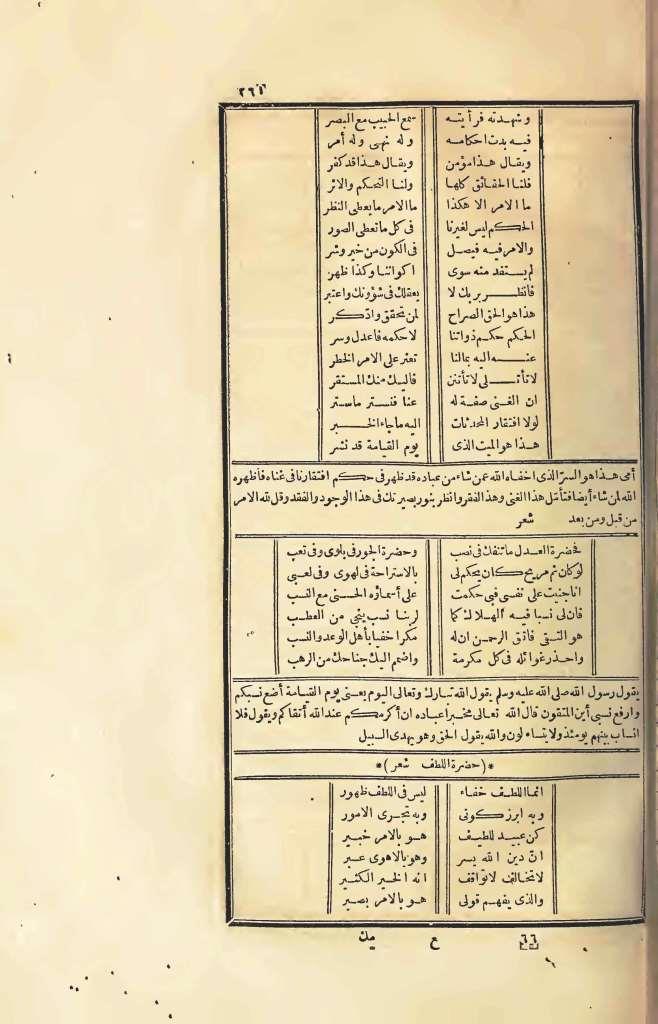 ٢٦١
وشهدته فرأيته سمع الحبيب مع البصر
فيه بدت احكامه وله نهى وله أمر
ويقال هذا مؤمن ويقال هذا قد كفر
فلنا الحقائق كلها ولنا التحكم والاثر
ما الامر الا هكذا ما الامر ما يعطى النظر
الحكم ليس لغيرنا فى كل ما تعطى الصور
والامر فيه فيصل فى الكون من خير وشر
لم يستفد منه سوى اكواننا وكذا ظهر
فانظر بربك لا بعقلك فى شؤونك واعتبر
هذا هو الحق الصراح لمن تحقق وادّكر
الحكم حكم ذواتنا لا حكمه فاعدل وسر
عنه اليه بمالنا تعثر على الامر الخطر
لا تأتلى لا تأتنن فاليك منك المستقر
ان الغنى صفة له عنا فنستر ما ستر
لولا افتقار المحدثات اليه ما جاء الخبر
هذا هو الميت الذى يوم القيامة قد نشر
أمى هذا هو السرّ الذى اخفاه الله عمن شاء من عباده قد ظهر فى حكم افتقارنا فى غناه فأظهره
الله لمن شاء أيضا فتأمّل هذا الغنى وهذا الفقر وانظر بنور بصيرتك فى هذا الوجود والفقد وقل لله الامر
من قبل ومن بعد شعر
فحضرة العدل ما تنفك فى نصب وحضرة الجور فى بلوى وفى تعب
لو كان ثم مريح كان يحكم لى بالاستراحة فى لهوى وفى لعبى
انا جنيت على نفسى فبى حكمت على أسماؤه الحسنى مع النسب
فان لى نسبا فيه الهلاك كما لربنا نسب ينجى من العطب
هو التقى فاتق الرحمن ان له مكرا خفيا بأهل الوعد والنسب
واحذر غوائله فى كل مكرمة واضمم اليك جناحك من الرهب
يقول رسول الله صلى الله عليه وسلم يقول الله تبارك وتعالى اليوم يعنى يوم القيامة أضع نسبكم
وارفع نسبى أين المتقون قال الله تعالى مخبرا عباده ان أكرمكم عند الله أتقاكم ويقول فلا
انساب بينهم يومئذ ولا يتساءلون والله يقول الحق وهو يهدى السبيل
*(حضرة اللطف شعر)*
انما اللطف خفاء ليس فى اللطف ظهور
وبه ابرز كونى وبه تجرى الامور
كن عبيد للطيف هو بالامر خبير
انّ دين الله يسر وهو بالاهوى عسر
لا تخالف لا توافق انه الخير الكثير
والذى يفهم قولى هو بالامر بصير
٦٦ ع مك